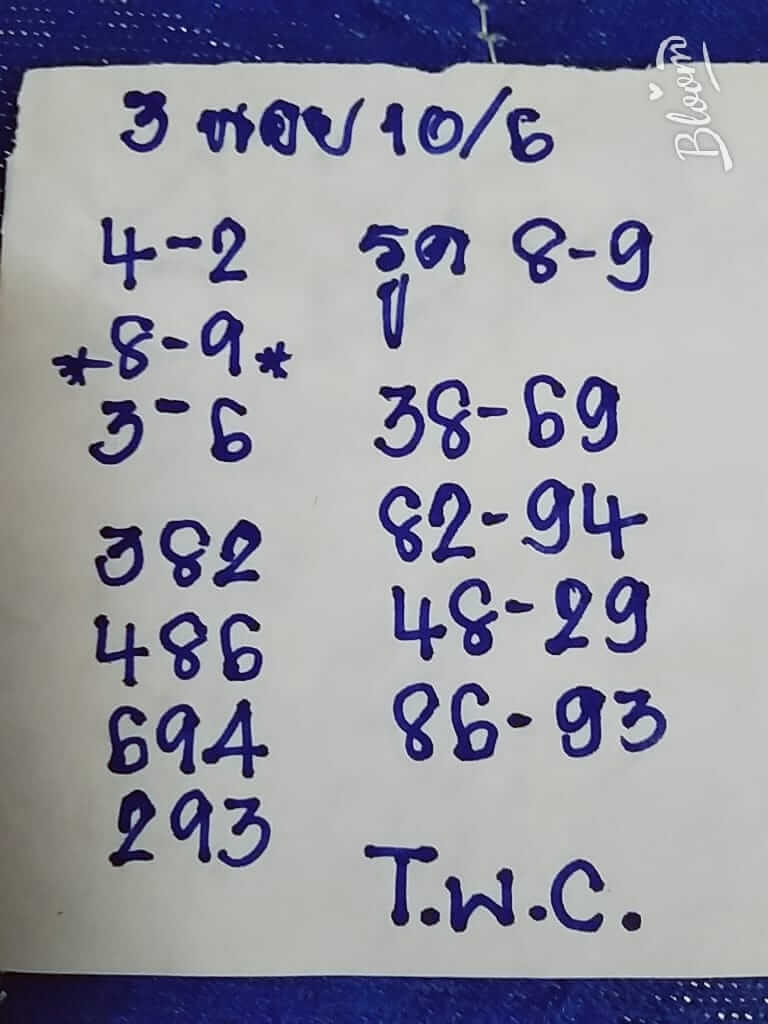 Bloom
3 หอย 10/6
4-2
*8-9*
3-6
382
486
694
293
รูด 8-9
38-69
82-94
48-29
86-93
T.W.C.